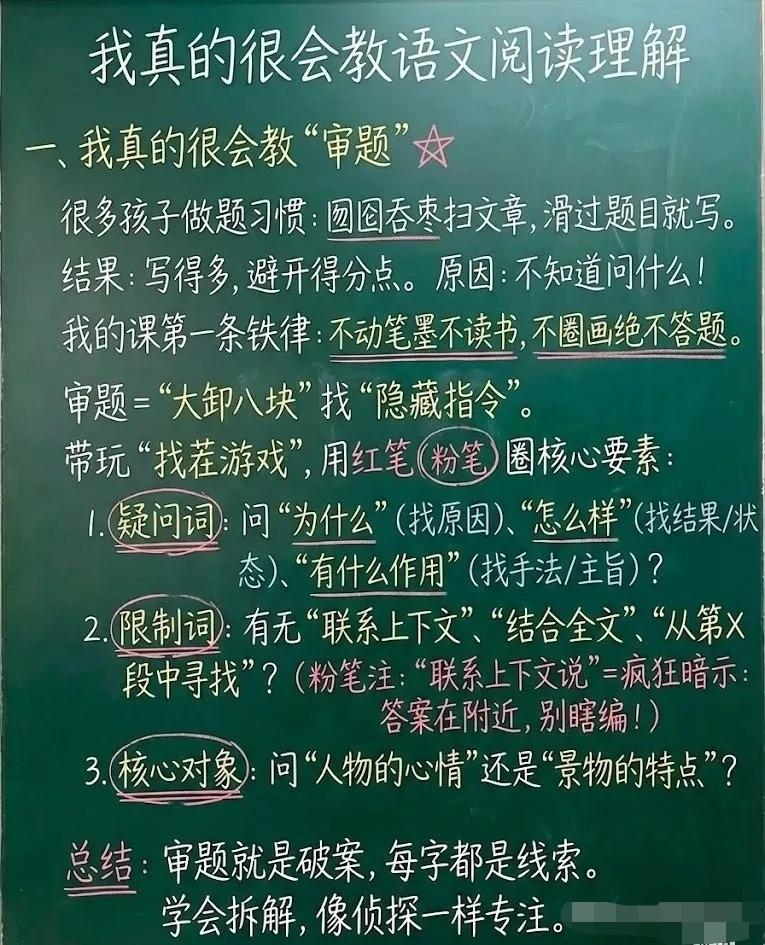 我真的很会教语文阅读理解
一、我真的很会教“审题”☆
很多孩子做题习惯：囫囵吞枣扫文章，滑过题目就写。
结果：写得多，避开得分点。原因：不知道问什么！
我的课第一条铁律：不动笔墨不读书，不圈画绝不答题。
审题=“大卸八块”找“隐藏指令”。
带玩“找茬游戏”，用红笔(粉笔)圈核心要素：
1.疑问词：问“为什么”(找原因)、“怎么样”(找结果/状
态)、“有什么作用”(找手法/主旨)？
2.限制词：有无“联系上下文”、“结合全文”、“从第X
段中寻找”？(粉笔注：“联系上下文说”=疯狂暗示：
答案在附近，别瞎编！)
3.核心对象：问“人物的心情”还是“景物的特点”？
总结：审题就是破案，每字都是线索。
学会拆解，像侦探一样专注。